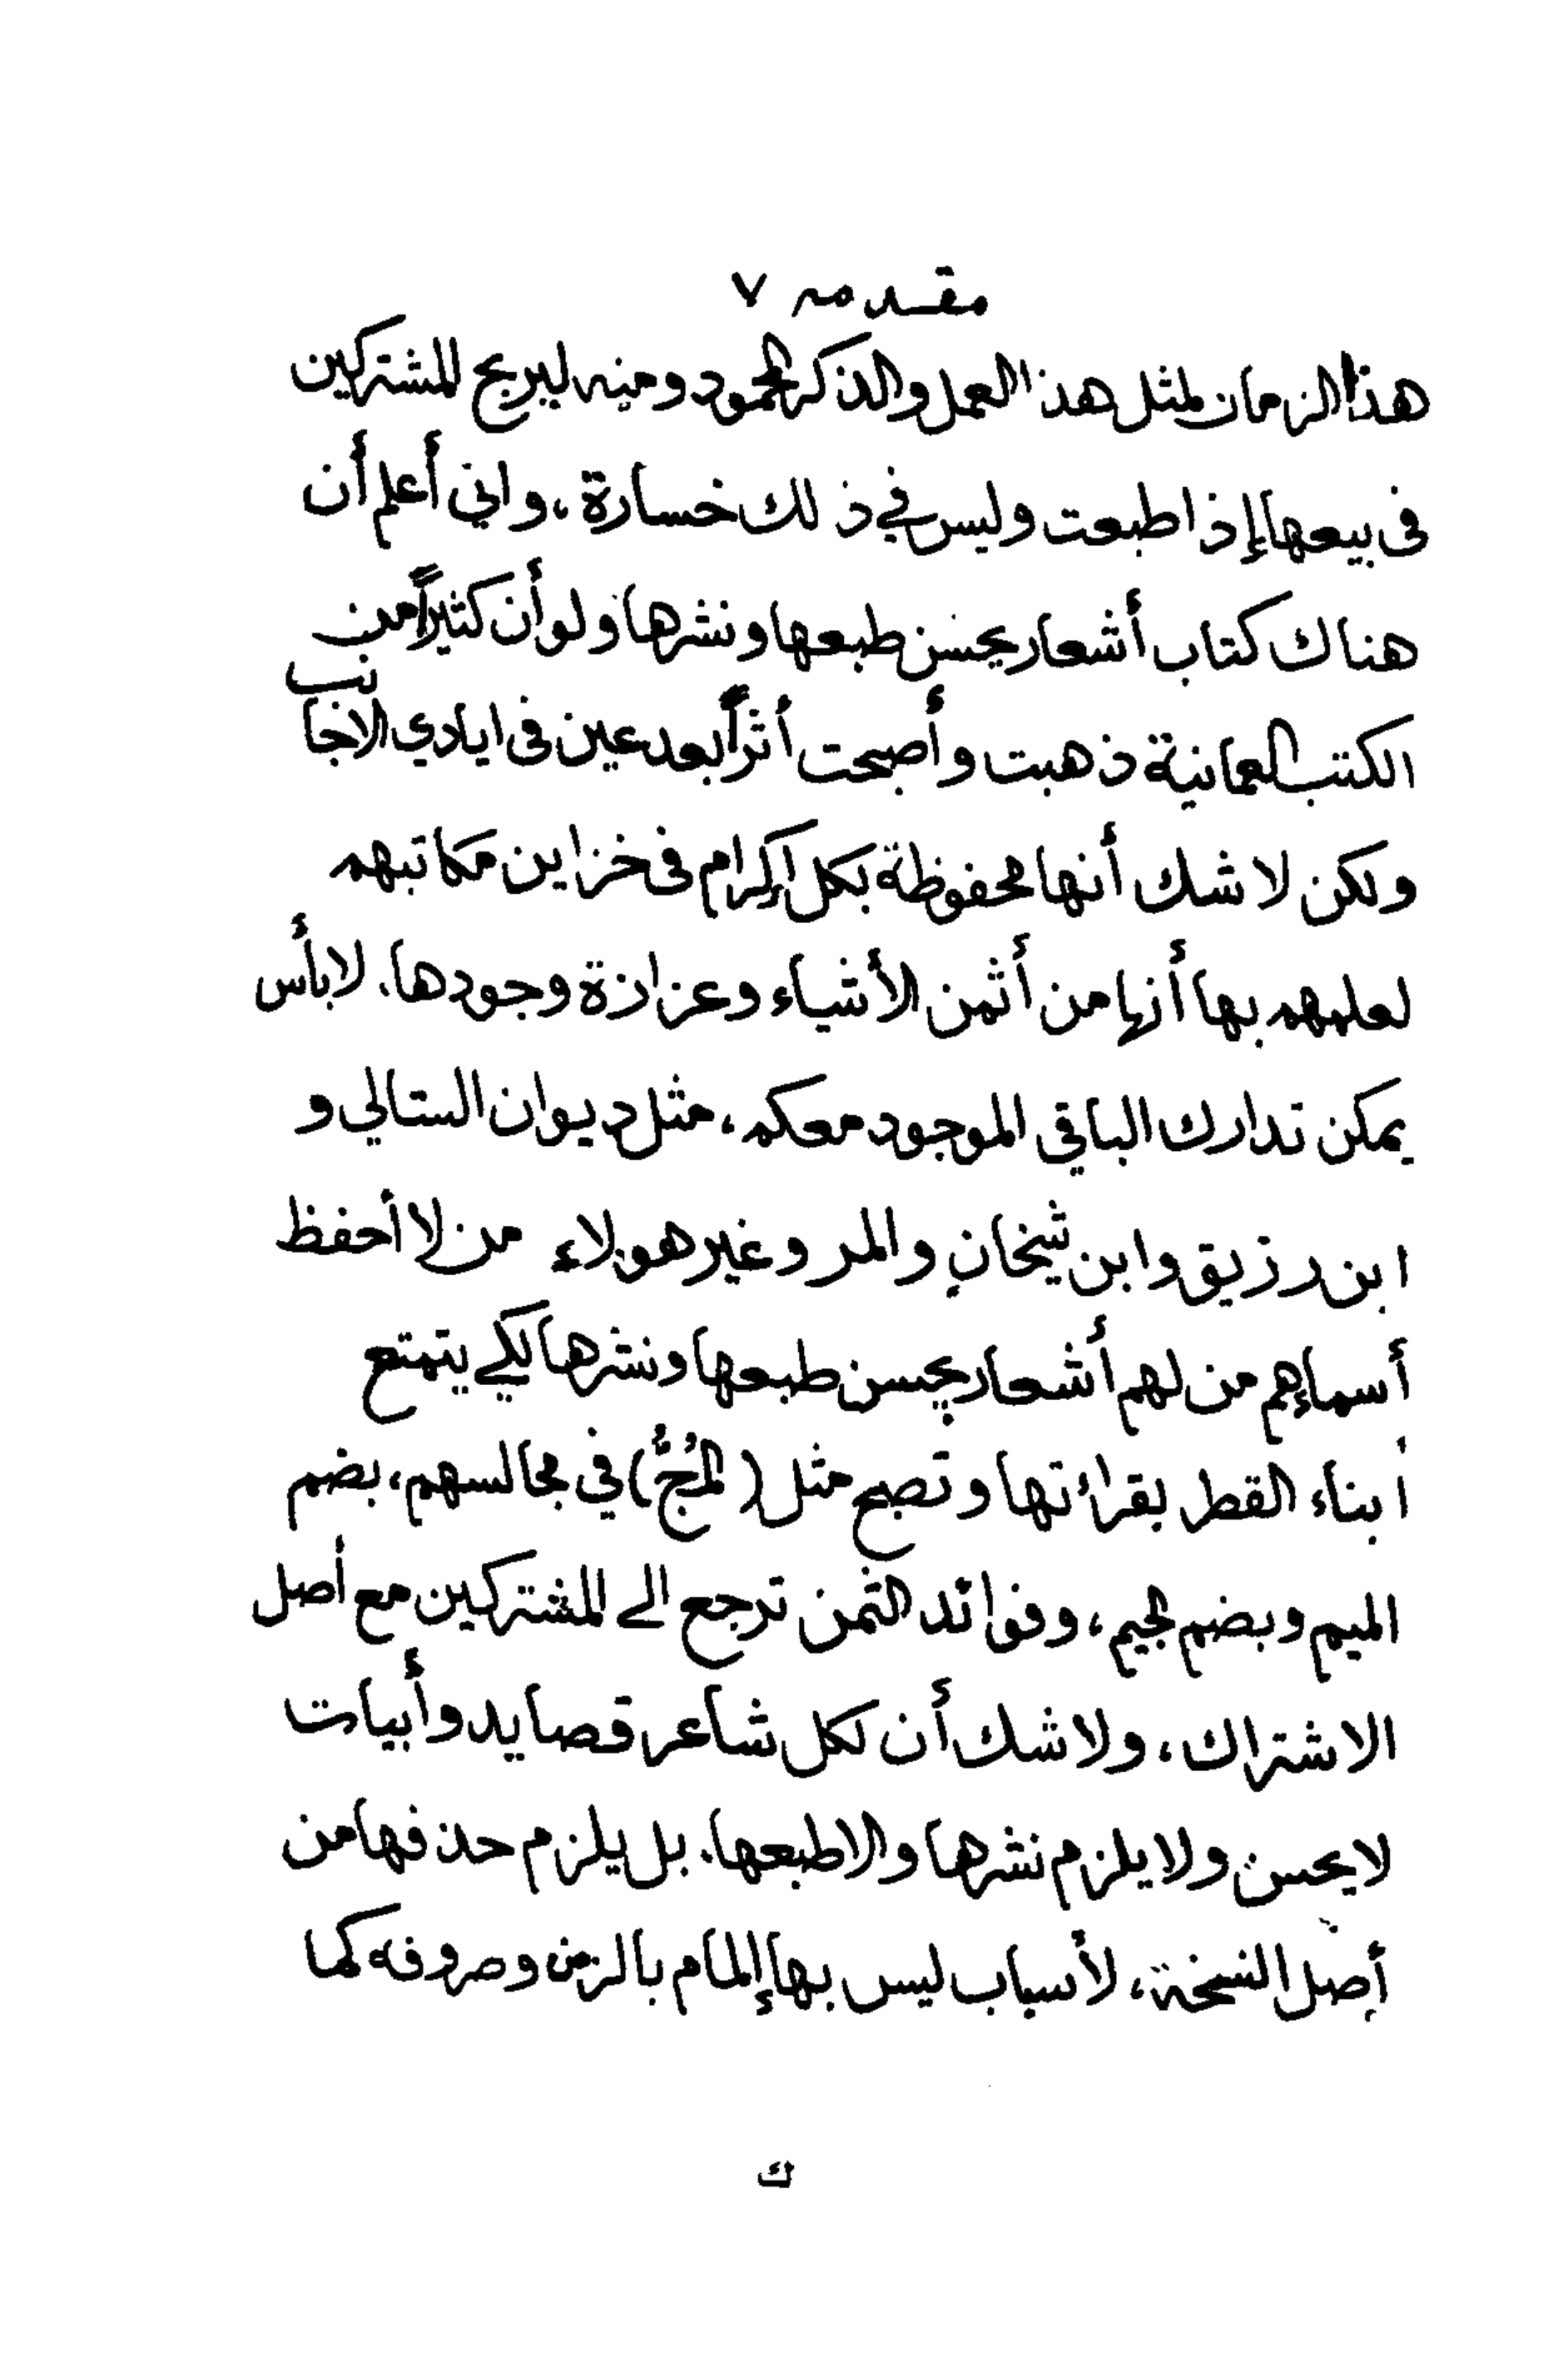 مقدمه ٧
هذا الزمان لمثل هذا العمل والذكر المحمود ومنه ليربح للمشتركين
فى بيعها إذا طبعت وليس في ذلك خسارة، واني أعلم أن
هناك كتاب أشعار يحسن طبعها ونشرها ولو أن كثيراً من
الكتب العمانية ذهبت وأصبحت أثراً بعد عين فى ايادي الاجانب
ولكن لا شك أنها محفوظة بكل إكرام فى خزاين مكاتبهم
لعلمهم بها أنها من أثمن الأشياء وعزازة وجودها. لا بأس
يمكن تدارك الباقي الموجود معكم، مثل ديوان الستالي و
ابن رزيق وابن شيخان والمر وغير هولاء من لا أحفظ
أسماءهم من لهم أشعار يحسن طبعها ونشرها لكي يتمتع
أبناء القطر بقرائتها وتصبح مثل (المُجُّ) في مجالسهم، بضم
الميم وبضم الجيم، وفوائد الثمن ترجع الى المشتركين مع أصل
الاشتراك، ولا شك أن لكل شاعر قصايد وأبيات
لا يحسن ولا يلزم نشرها والا طبعها. بل يلزم حذفها من
أصل النسخة، لأسباب ليس بها إلمام بالزمن وصروفه كما
ك